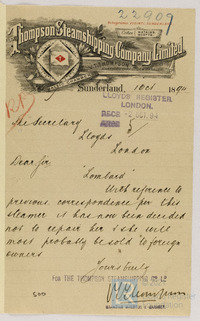 22909
Thompson Steamshipping Company Limited.
Sunderland, 1 Oct 1894
LLOYDS REGISTER
LONDON.
RECD -2 OCT. 94
The Secretary
Lloyds
London
Dear Sir
"Lombard"
With reference to
previous correspondence for this
steamer it has now been decided
not to repair her & she will
most probably be sold to foreign
owners
Yours truly
FOR THE THOMPSON STEAMSHIPPING CO. LD
500